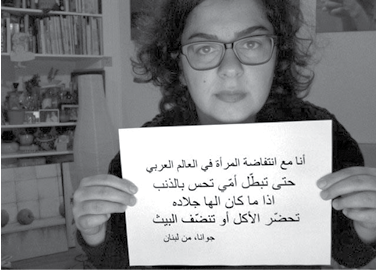 أنا مع انتفاضة المرأة في العالم العربي
حتى تبطّل أمّي تحس بالذنب
اذا ما كان الها جلاده
تحضّر الأكل أو تنضّف البيت
جوانا، من لبنان